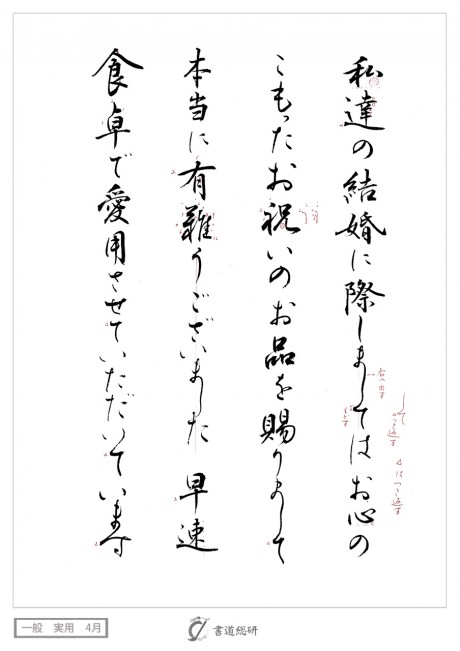 私達の結婚に際しましてはお心の
こもったお祝いのお品を賜りまして
本当に有難うございました 早速
食卓で愛用させていただいています
して
つき返す
はつき返す
一般 実用 4月
書道総研